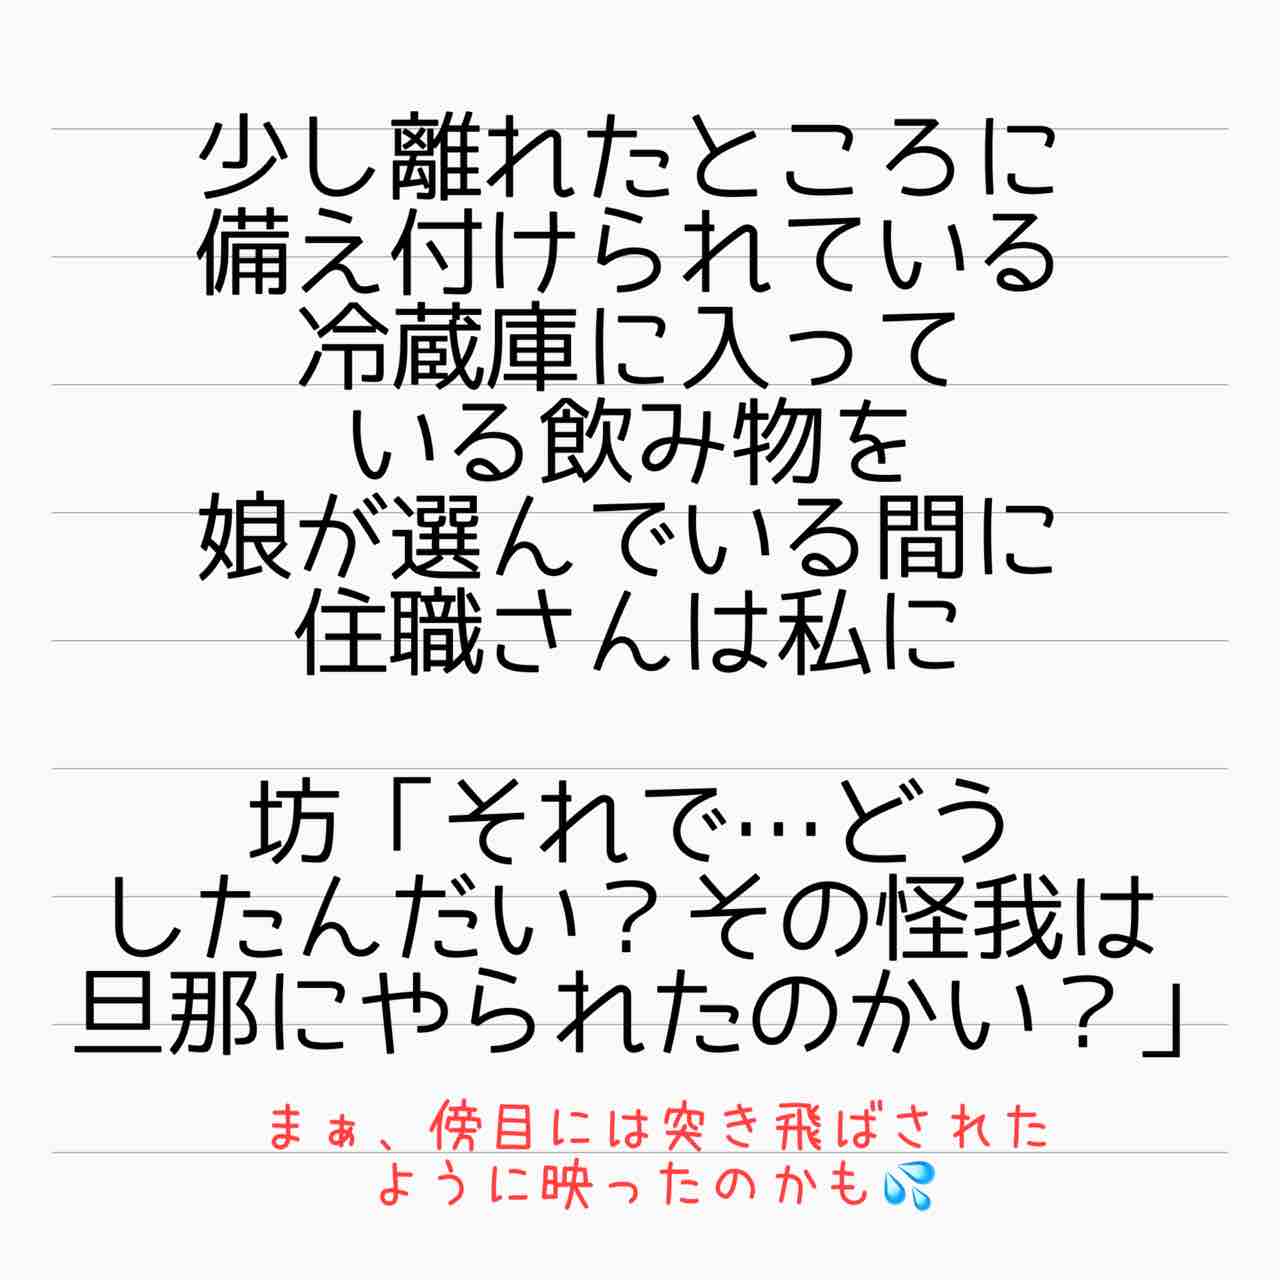 少し離れたところに
備え付けられている
冷蔵庫に入って
いる飲み物を
娘が選んでいる間に
住職さんは私に
坊「それで…どう
したんだい？その怪我は
旦那にやられたのかい？」
まぁ、傍目には突き飛ばされた
ように映ったのかも💦